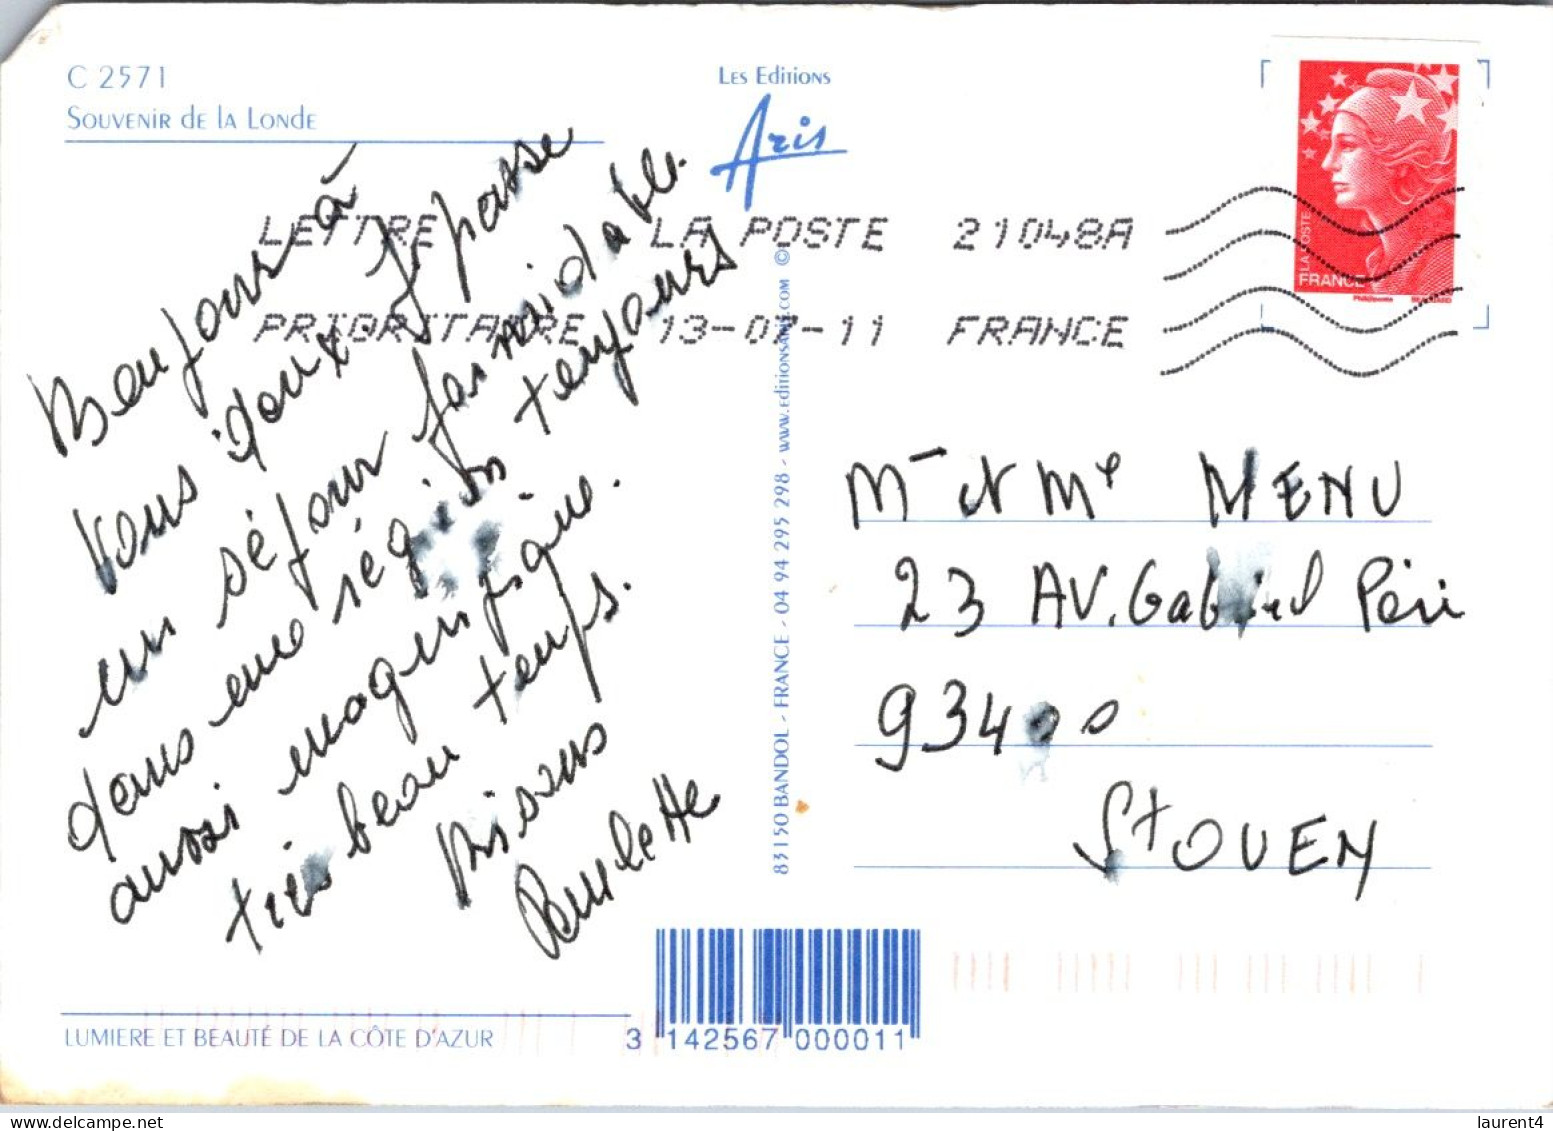 C 2571
Souvenir de la Londe
Les Editions
Aris
LA POSTE
FRANCE
LETTRE LA POSTE 21048A
PRIORITAIRE 13-07-11 FRANCE
Bonjour à
vous deux. Je passe
un séjour formidable.
dans une région toujours
aussi magnifique.
très beau temps.
Bisous
Paulette
Mr et Me MENU
23 AV. Gabriel Péri
93400
St OUEN
83150 BANDOL - FRANCE - 04 94 295 298 - www.EDITIONSARIS.COM ©
LUMIERE ET BEAUTÉ DE LA CÔTE D'AZUR
3 142567 000011
laurent4